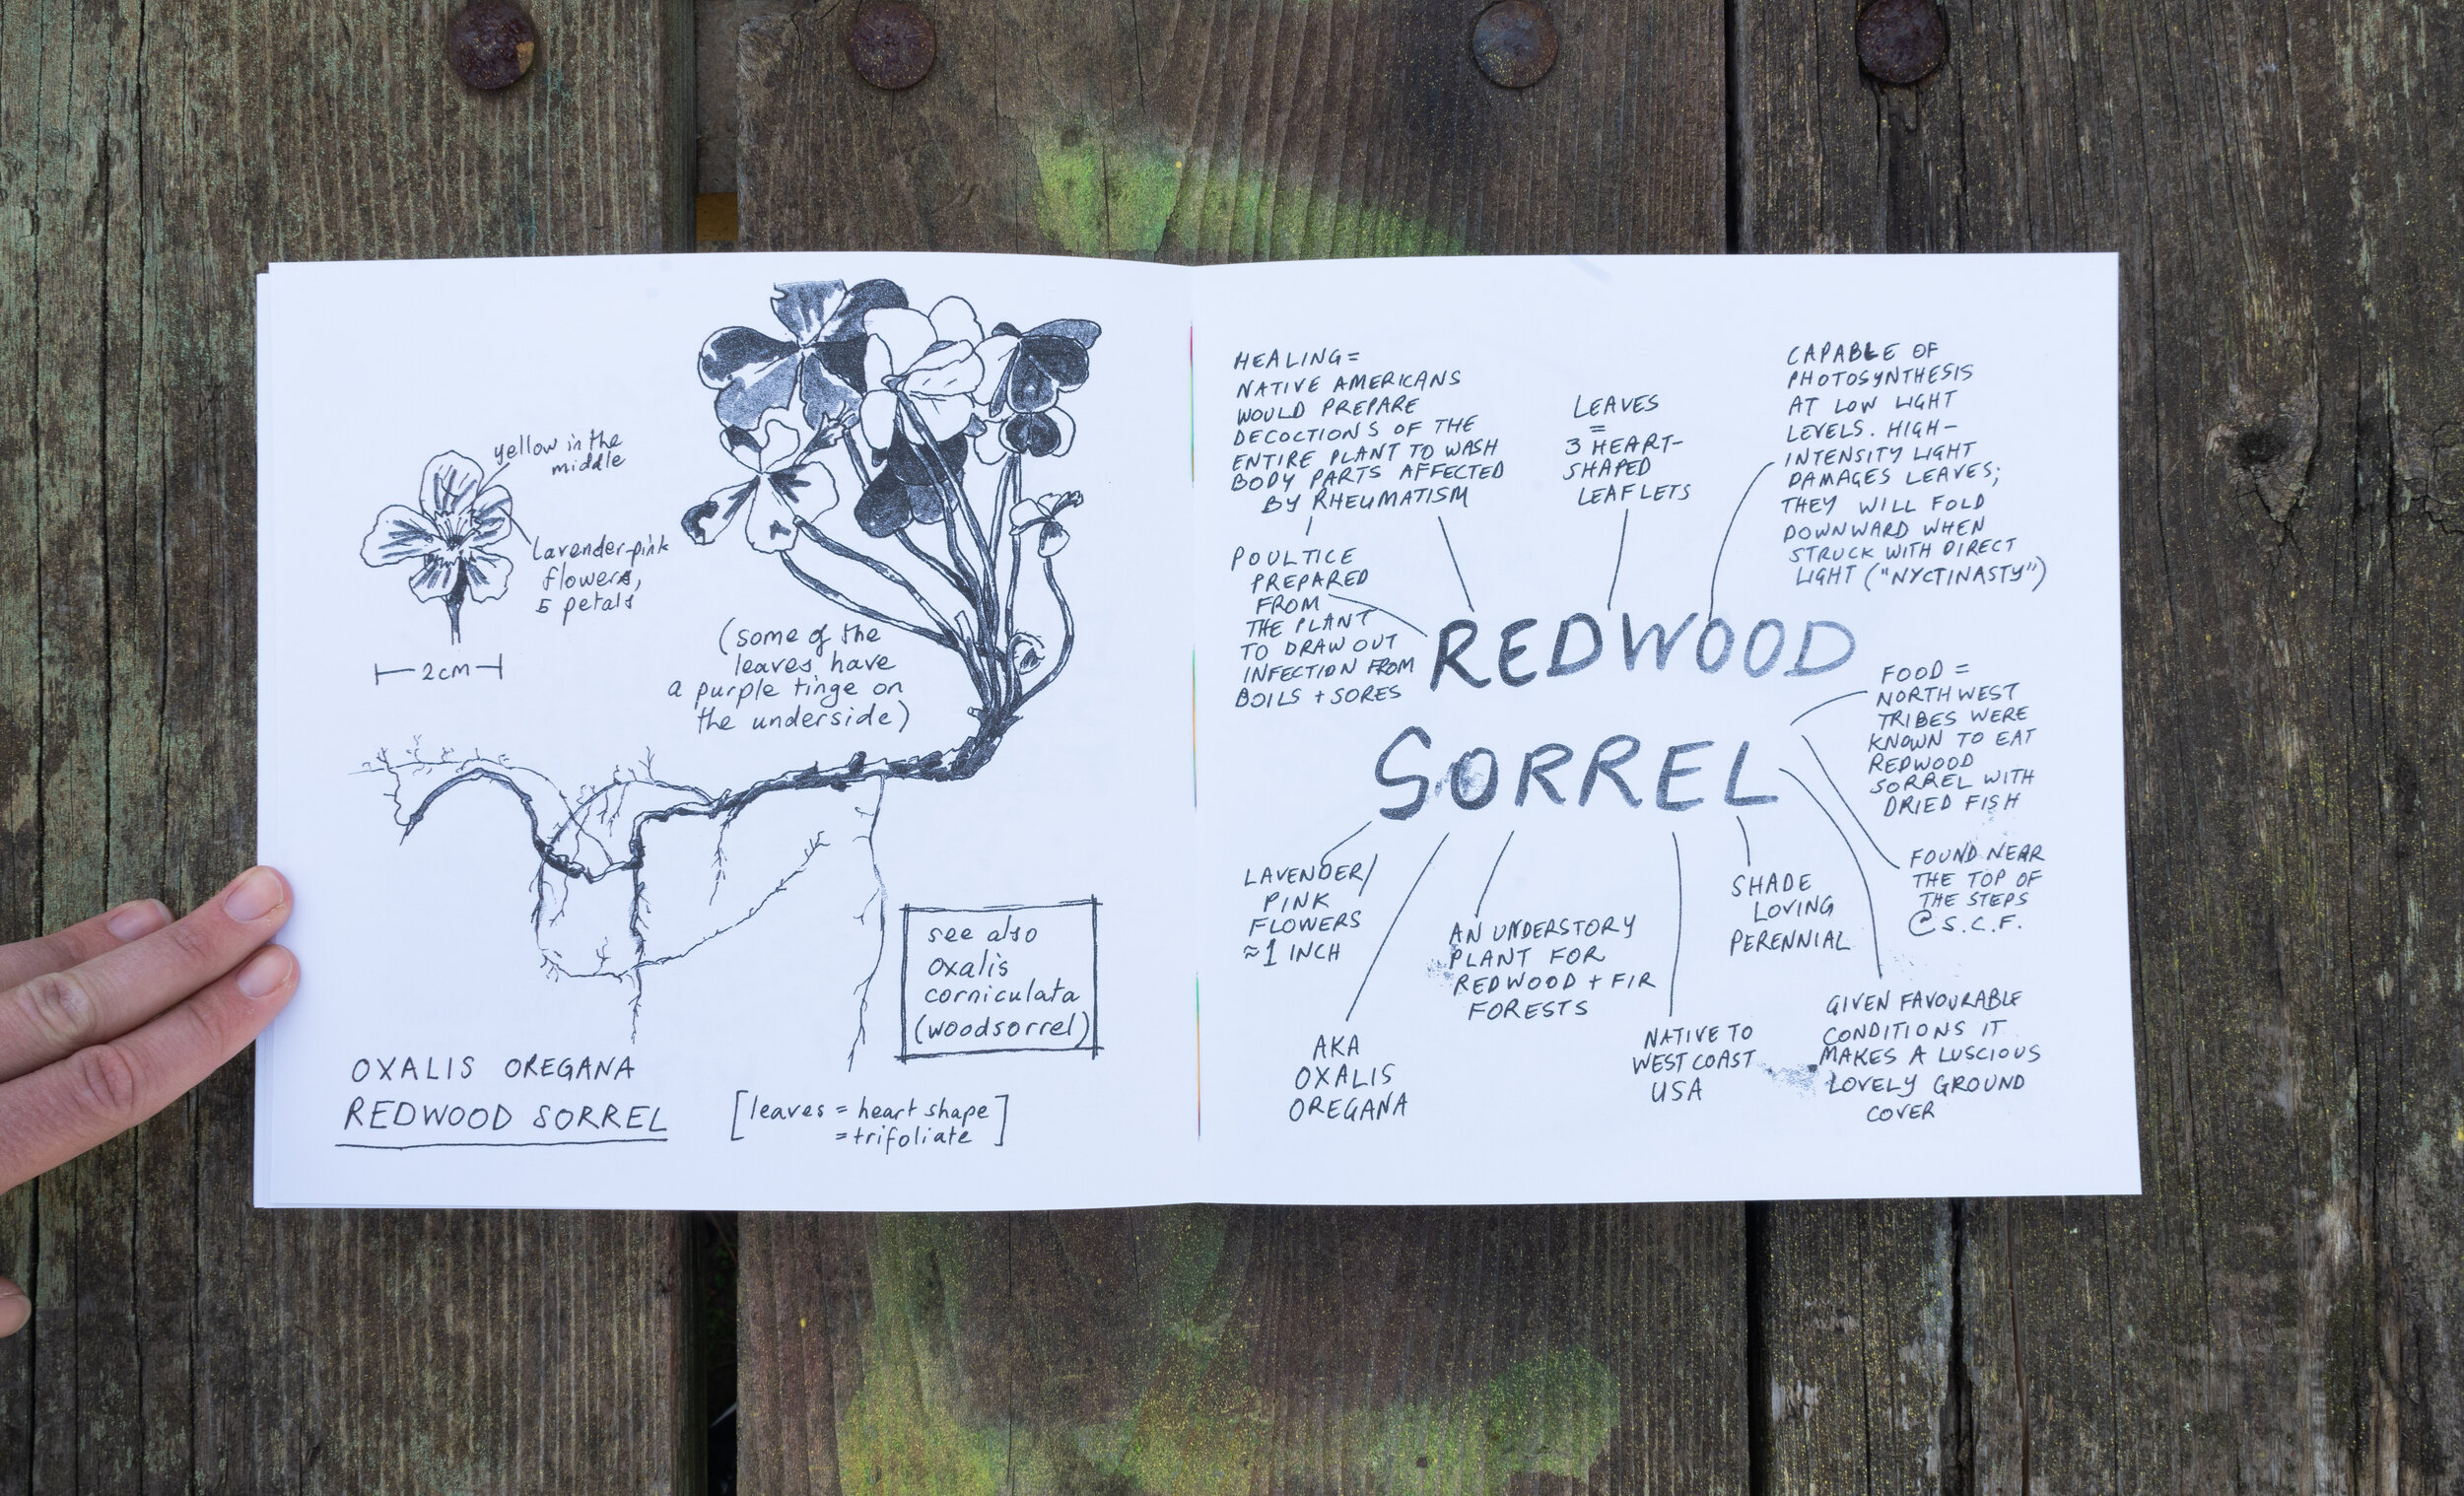 yellow in the
middle
lavender-pink
flowers,
5 petals
2cm
(some of the
leaves have
a purple tinge on
the underside)
see also
oxalis
corniculata
(woodsorrel)
OXALIS OREGANA
REDWOOD SORREL
[leaves = heart shape
= trifoliate]
HEALING =
NATIVE AMERICANS
WOULD PREPARE
DECOCTIONS OF THE
ENTIRE PLANT TO WASH
BODY PARTS AFFECTED
BY RHEUMATISM
POULTICE
PREPARED
FROM
THE PLANT
TO DRAW OUT
INFECTION FROM
BOILS + SORES
LEAVES
=
3 HEART-
SHAPED
LEAFLETS
CAPABLE OF
PHOTOSYNTHESIS
AT LOW LIGHT
LEVELS. HIGH-
INTENSITY LIGHT
DAMAGES LEAVES;
THEY WILL FOLD
DOWNWARD WHEN
STRUCK WITH DIRECT
LIGHT ("NYCTINASTY")
REDWOOD
SORREL
FOOD =
NORTHWEST
TRIBES WERE
KNOWN TO EAT
REDWOOD
SORREL WITH
DRIED FISH
FOUND NEAR
THE TOP OF
THE STEPS
@ S.C.F.
LAVENDER/
PINK
FLOWERS
≈1 INCH
AKA
OXALIS
OREGANA
AN UNDERSTORY
PLANT FOR
REDWOOD + FIR
FORESTS
NATIVE TO
WEST COAST
USA
SHADE
LOVING
PERENNIAL
GIVEN FAVOURABLE
CONDITIONS IT
MAKES A LUSCIOUS
LOVELY GROUND
COVER